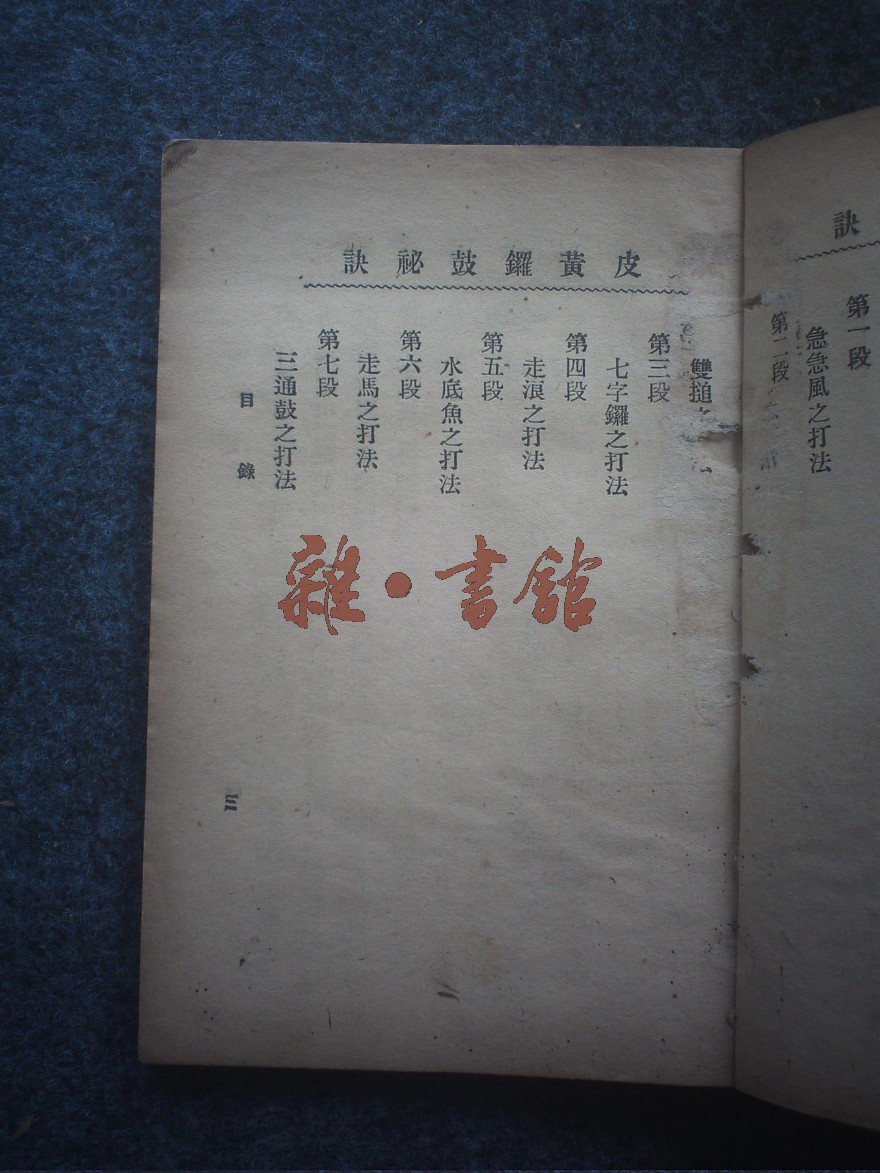 訣
第一段
急急風之打法
第二段
皮黃鑼鼓祕訣
雙搥之 法
第三段
七字鑼之打法
第四段
走浪之打法
第五段
水底魚之打法
第六段
走馬之打法
第七段
三通鼓之打法
目錄
三
雜·書舘